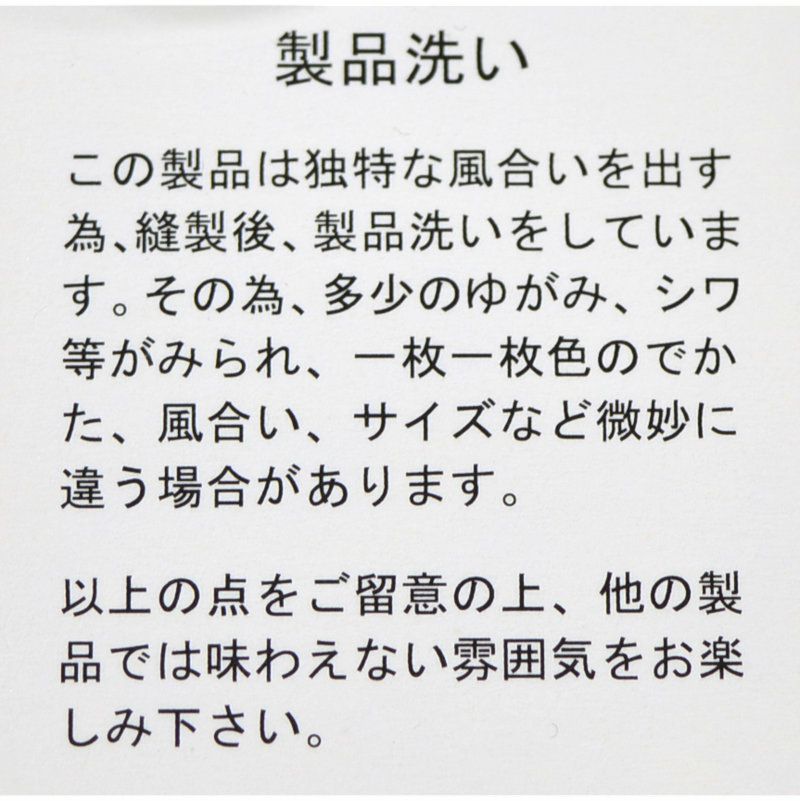 製品洗い
この製品は独特な風合いを出す
為、縫製後、製品洗いをしていま
す。その為、多少のゆがみ、シワ
等がみられ、一枚一枚色のでか
た、風合い、サイズなど微妙に
違う場合があります。
以上の点をご留意の上、他の製
品では味わえない雰囲気をお楽
しみ下さい。